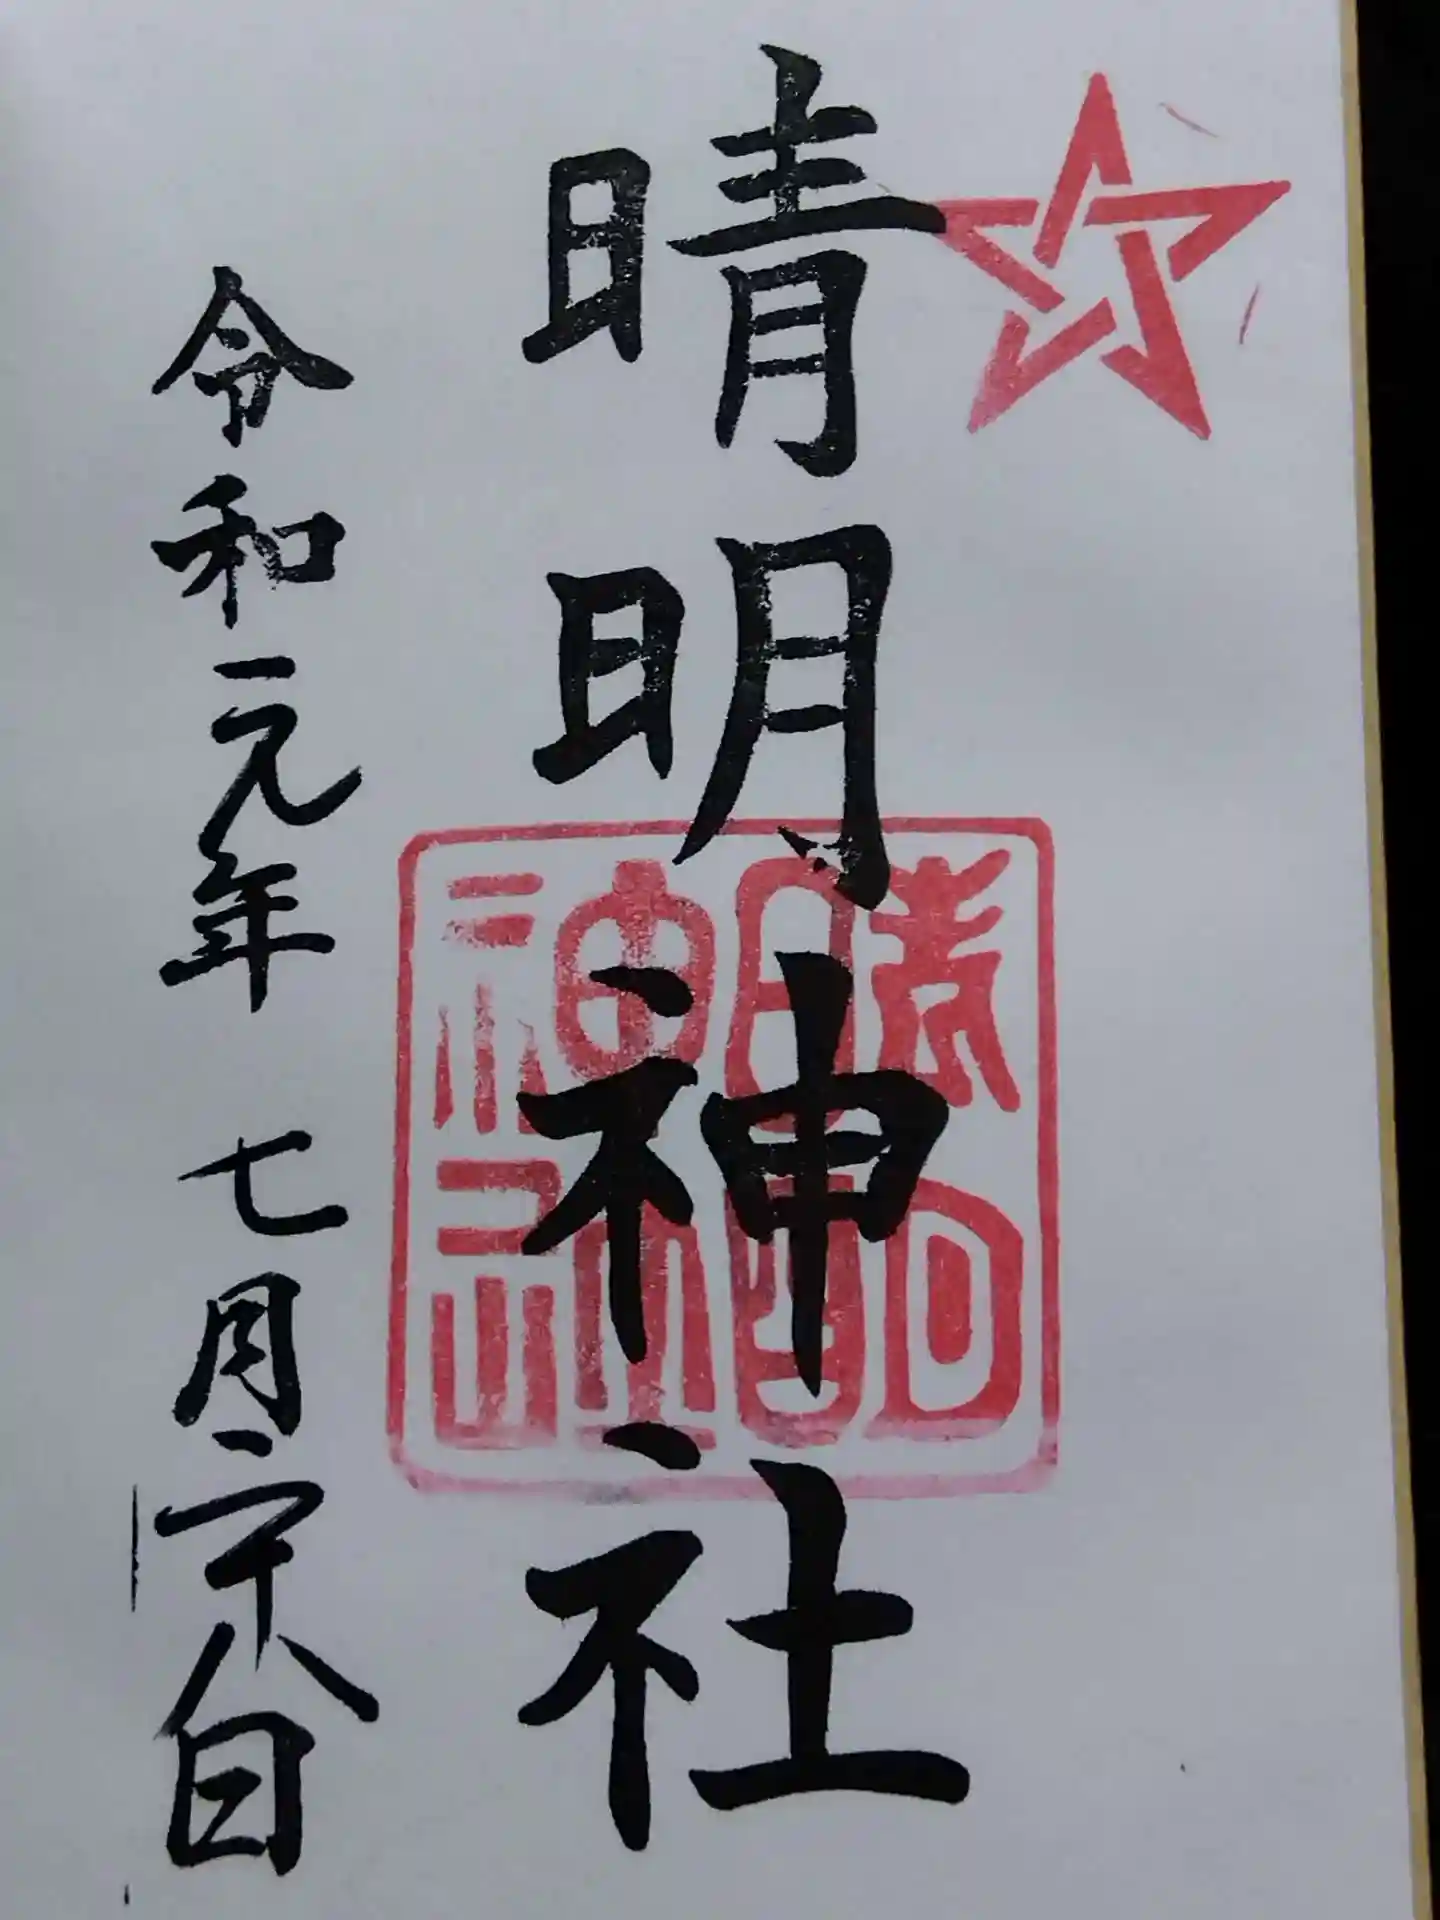 晴明神社
晴明
神社
令和元年 七月二十八日